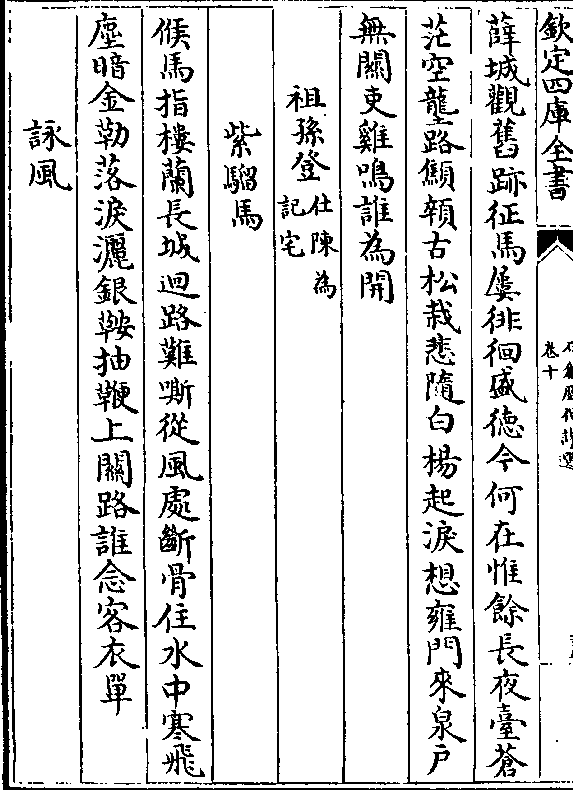 欽定四庫全書
卷十
薛城觀舊跡征馬屢徘徊盛德今何在惟餘長夜臺蒼
茫空壟路顦顇古松栽悲隨白楊起淚想雍門來泉戶
無關吏雞鳴誰為開
祖孫登仕陳為記宅
紫騮馬
候馬指樓蘭長城迴路難嘶從風處斷骨住水中寒飛
塵暗金勒落淚灑銀鞍抽鞭上關路誰念客衣單
詠風